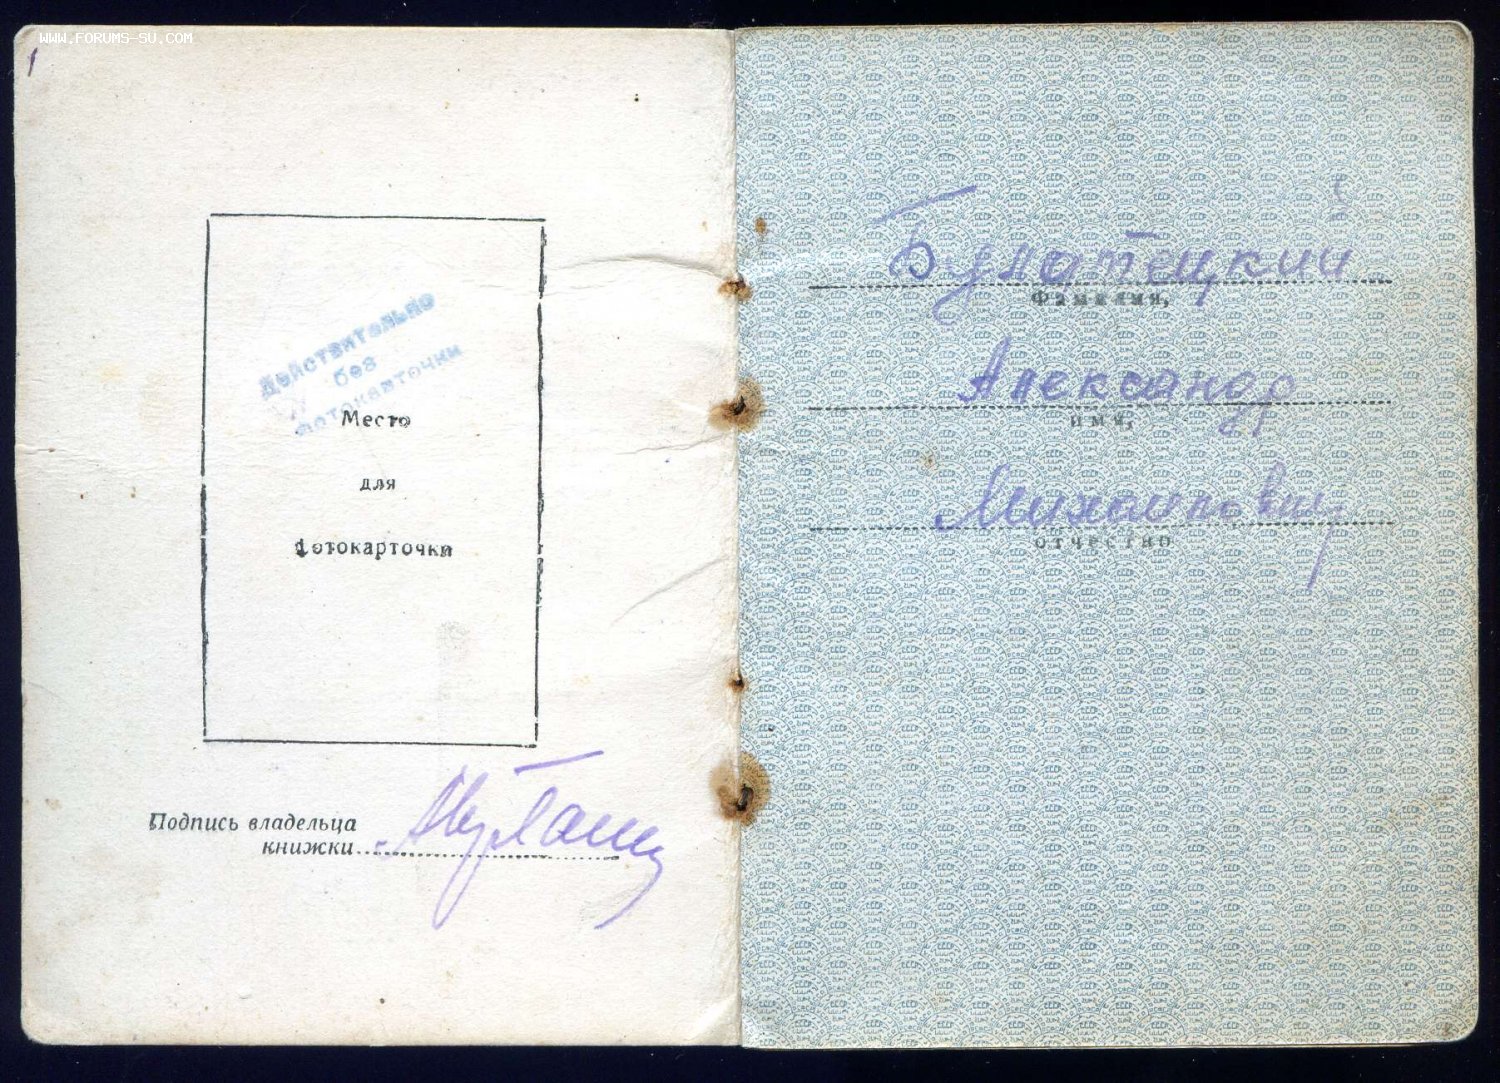 WWW.FORUMS-SU.COM
Действительно
без
фотокарточки
Место
для
фотокарточки
Подпись владельца
книжки
Булатецкий
Фамилия,
Александр
имя,
Михайлович
отчество